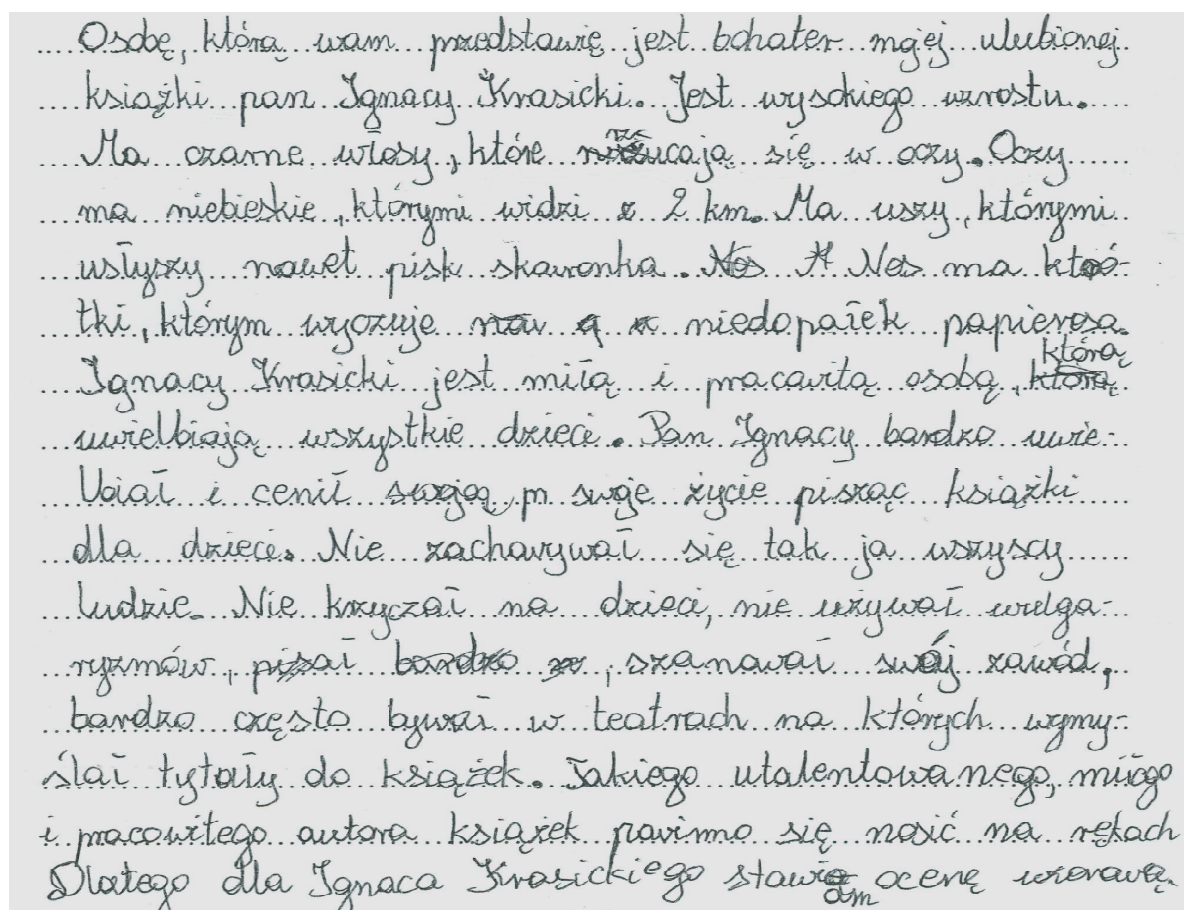 Osobę, którą wam przedstawię jest bohater mojej ulubionej
książki pan Ignacy Krasicki. Jest wysokiego wzrostu.
Ma czarne włosy, które rzucają się w oczy. Oczy
ma niebieskie, którymi widzi z 2 km. Ma uszy, którymi
usłyszy nawet pisk skowronka. Nos ma
tki, którym wyczuje niedopałek papierosa.
Ignacy Krasicki jest miłą i pracowitą osobą, którą
uwielbiają wszystkie dzieci. Pan Ignacy bardzo uwie-
lbiał i cenił swoje życie pisząc książki
dla dzieci. Nie zachowywał się tak ja wszyscy
ludzie. Nie krzyczał na dzieci, nie używał wulga-
ryzmów, szanował swój zawód,
bardzo często bywał w teatrach na których wymy-
ślał tytuły do książek. Takiego utalentowanego, miłego
i pracowitego autora książek powinno się nosić na rękach
Dlatego dla Ignaca Krasickiego stawiam ocenę wzorową.